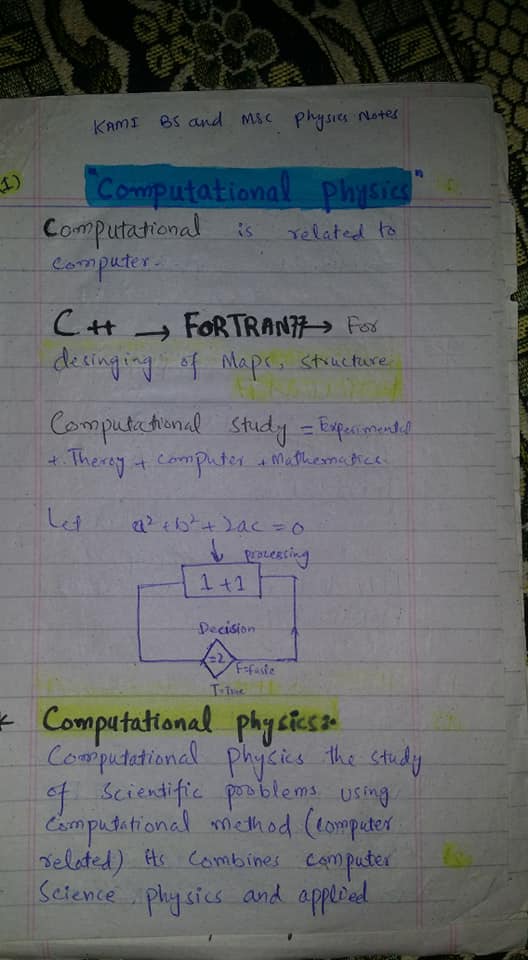 KAMI BS and MSC physics Notes
1)
"Computational physics"
Computational is related to
computer.
C++ → FORTRAN77 → For
desinging of Maps, structure
Computational study = Experimental
+ Theroy + computer + Mathematics.
Let a² + b² + 2ac = 0
processing
1 + 1
Decision
=2
F=
T=true
Computational physics:-
Computational physics the study
of scientific problems using
Computational method (computer
related) its combines computer
Science physics and applied